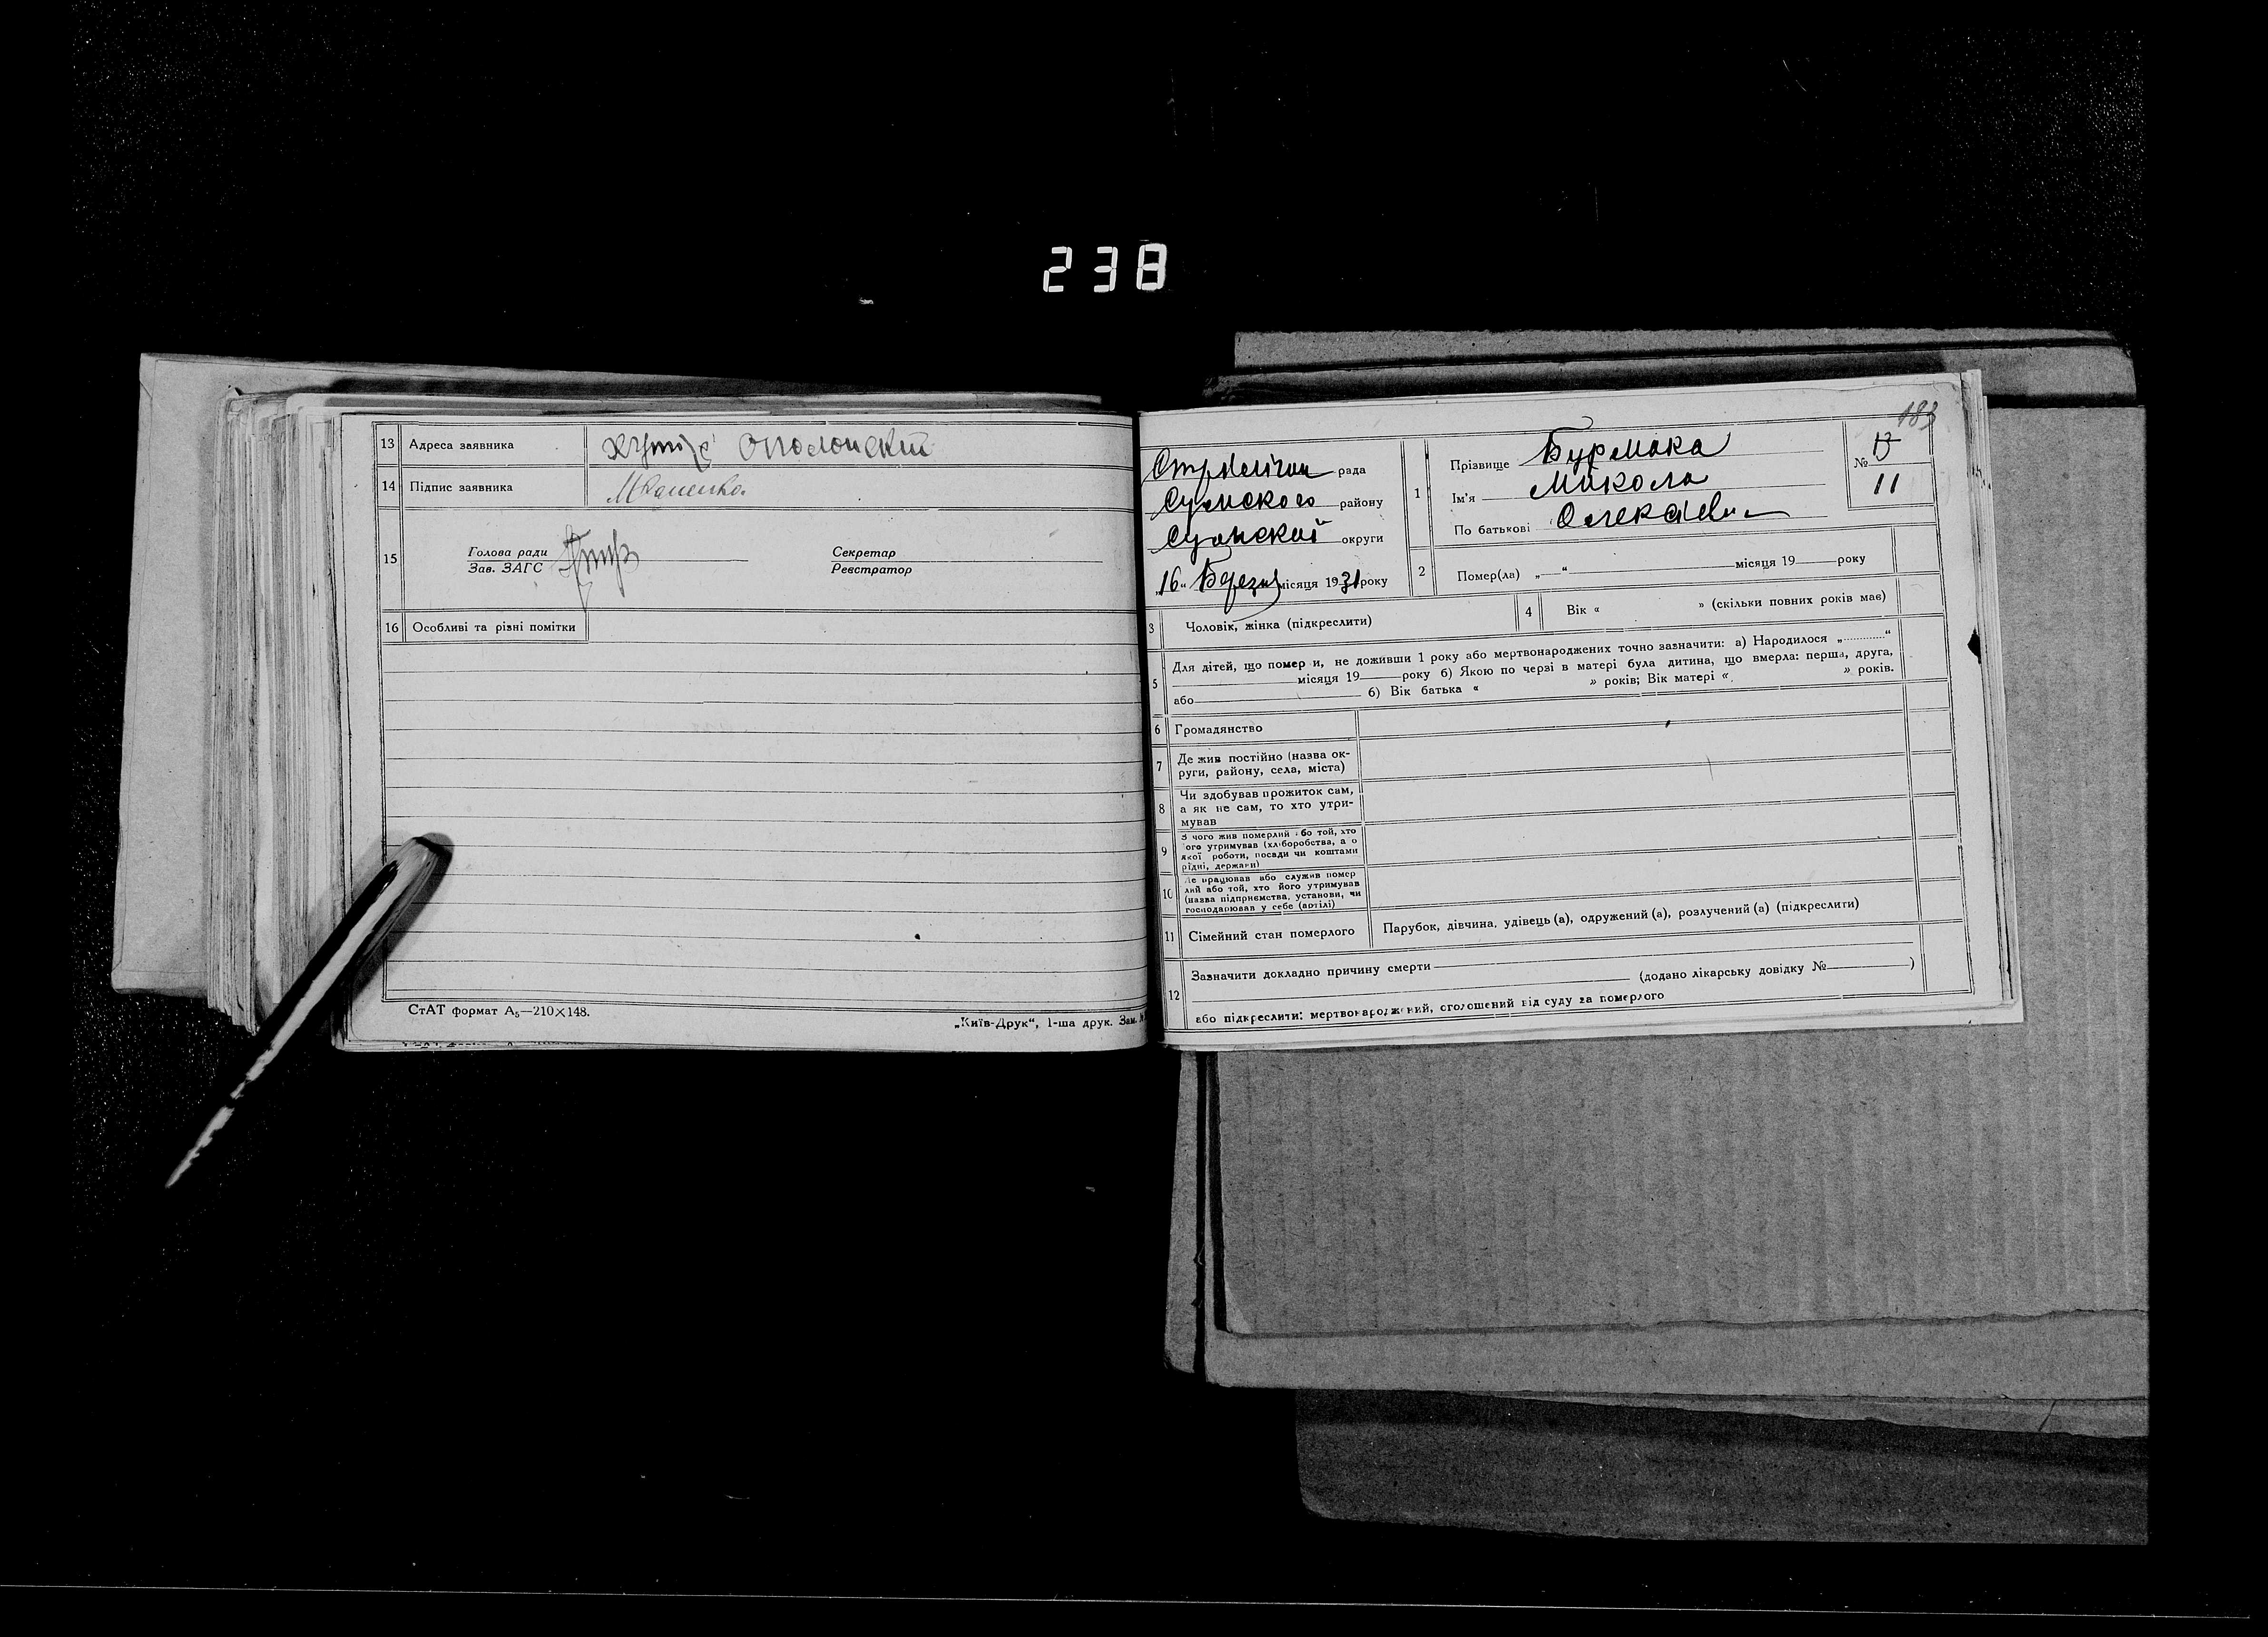 238
13 Адреса заявника
14 Підпис заявника
15 Голова ради Секретар
Зав. ЗАГС Реєстратор
16 Особливі та різні помітки
СтАТ формат А₅—210×148.
„Київ-Друк“, 1-ша друк. Зам. №
183
рада
Сумского району
Сумской округи
„16“ місяця 1931 року
1 Прізвище Бурмака
Ім'я Микола
По батькові
№ 12
11
2 Помер(ла) „—“ місяця 19 року
3 Чоловік, жінка (підкреслити)
4 Вік « » (скільки повних років має)
5 Для дітей, що помер и, не доживши 1 року або мертвонароджених точно зазначити: а) Народилося „ “
місяця 19 року б) Якою по черзі в матері була дитина, що вмерла: перша, друга,
або б) Вік батька « » років; Вік матері « » років.
6 Громадянство
7 Де жив постійно (назва ок-
руги, району, села, міста)
8 Чи здобував прожиток сам,
а як не сам, то хто утри-
мував
9 З чого жив померлий або той, хто
ого утримував (хліборобства, а о
якої роботи, посади чи коштами
рідні, держави)
10 Де працював або служив помер
лий або той, хто його утримував
(назва підприємства, установи, чи
господарював у себе (артілі)
11 Сімейний стан померлого Парубок, дівчина, удівець (а), одружений (а), розлучений (а) (підкреслити)
12 Зазначити докладно причину смерти
(додано лікарську довідку № )
або підкреслити: мертвонароджений, оголошений від суду за померлого